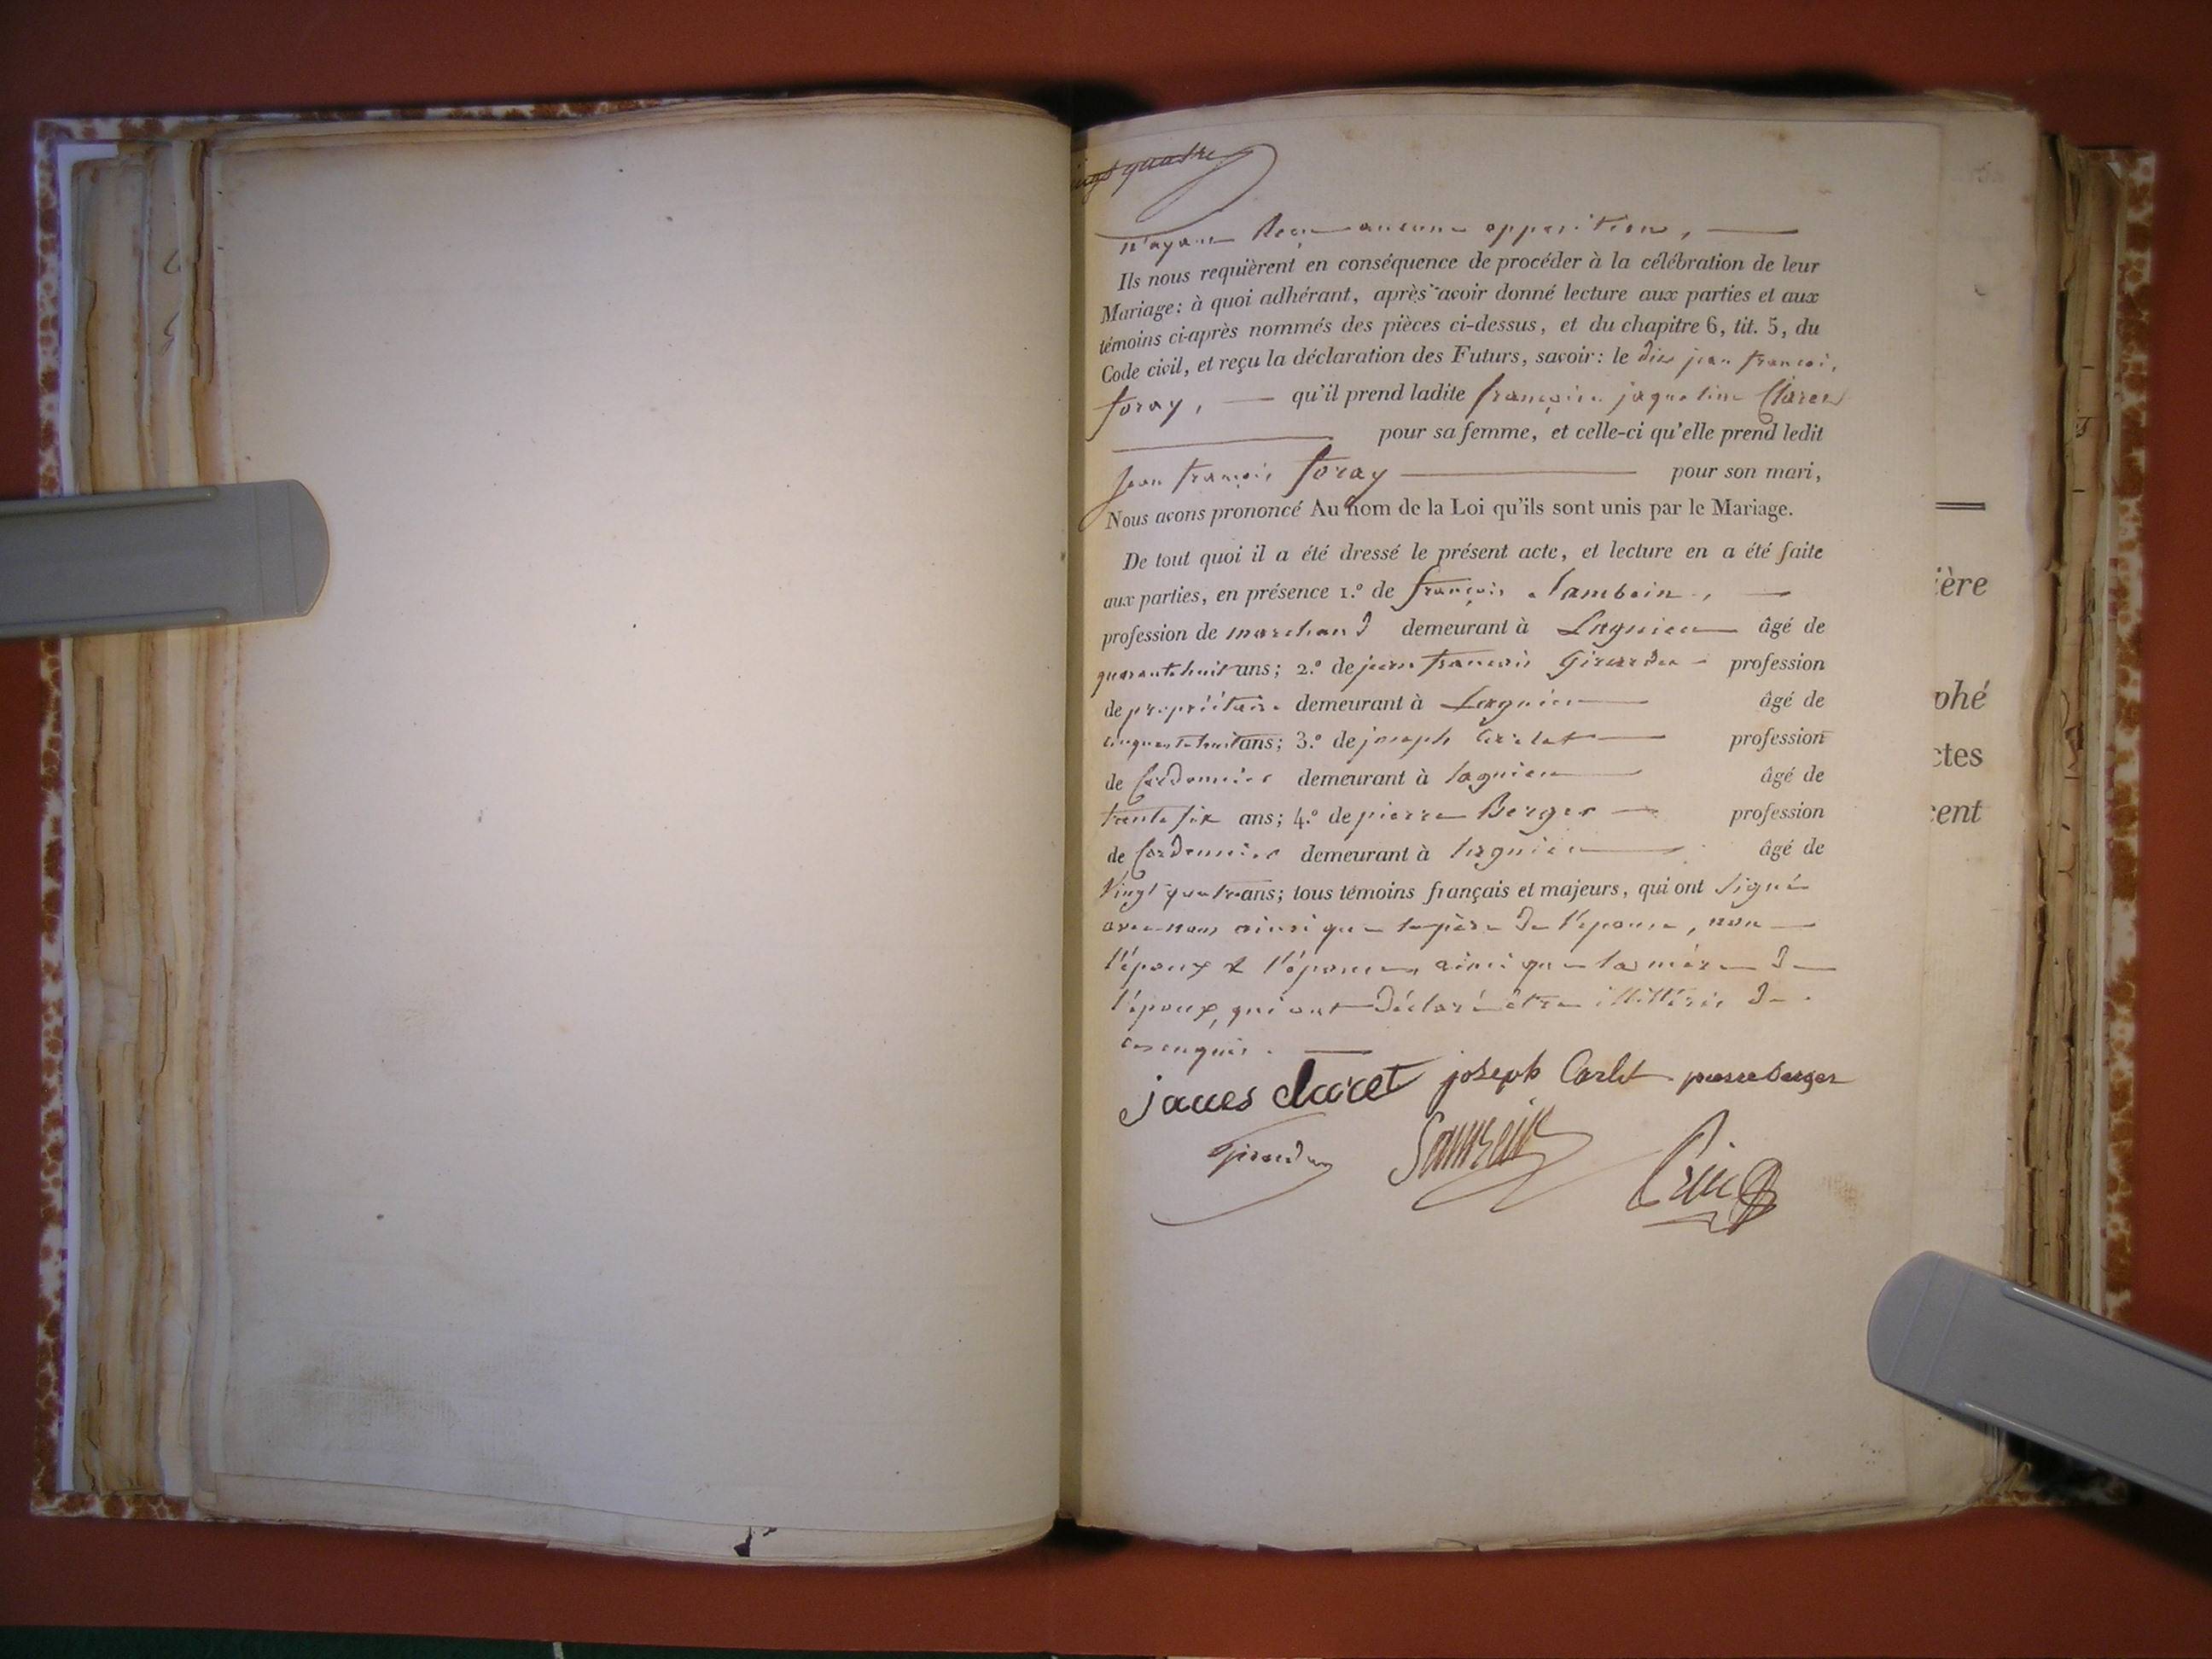 vingt quatre
n'ayant Reçu aucune opposition,
Ils nous requièrent en conséquence de procéder à la célébration de leur
Mariage: à quoi adhérant, après avoir donné lecture aux parties et aux
témoins ci-après nommés des pièces ci-dessus, et du chapitre 6, tit. 5, du
Code civil, et reçu la déclaration des Futurs, savoir: le dit jean françois
foray, qu'il prend ladite françoise jaqueline Claret
pour sa femme, et celle-ci qu'elle prend ledit
Jean françois foray pour son mari,
Nous avons prononcé Au nom de la Loi qu'ils sont unis par le Mariage.
De tout quoi il a été dressé le présent acte, et lecture en a été faite
aux parties, en présence 1.° de françois
profession de marchand demeurant à Lagnieu âgé de
quarante huit ans; 2.° de jean françois profession
de propriétaire demeurant à Lagnieu âgé de
cinquante huit ans; 3.° de joseph Carlet profession
de Cordonnier demeurant à lagnieu âgé de
trente six ans; 4.° de pierre Berger profession
de Cordonnier demeurant à lagnieu âgé de
Vingt quatre ans; tous témoins français et majeurs, qui ont signé
avec nous ainsi que le père de l'epouse, non
l'époux & l'épouse, ainsi que la mère de
l'époux, qui ont déclaré être illittérés de
ce enquis.
jacues claret joseph Carlet pierre berger
ière
phé
ctes
cent